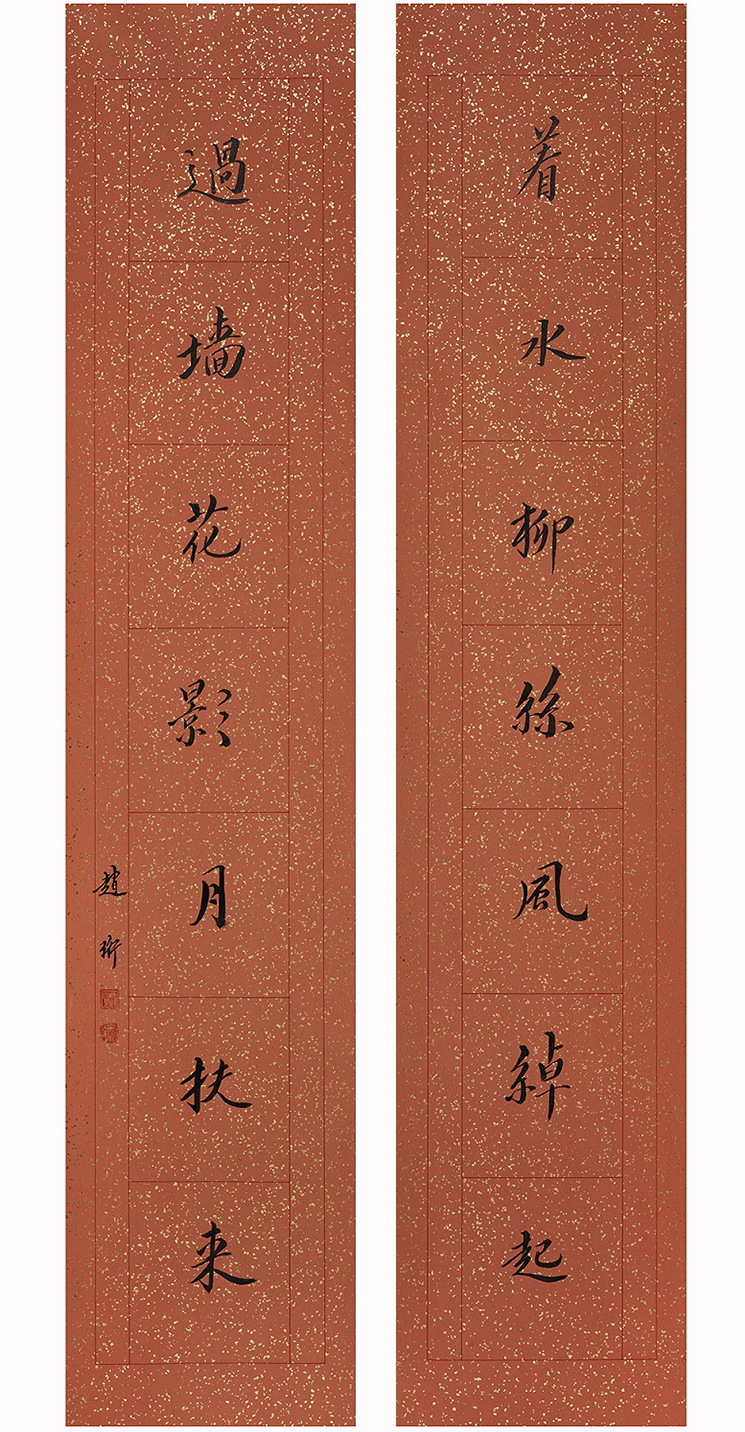 着水柳絲風綽起
過墙花影月扶来
趙珩